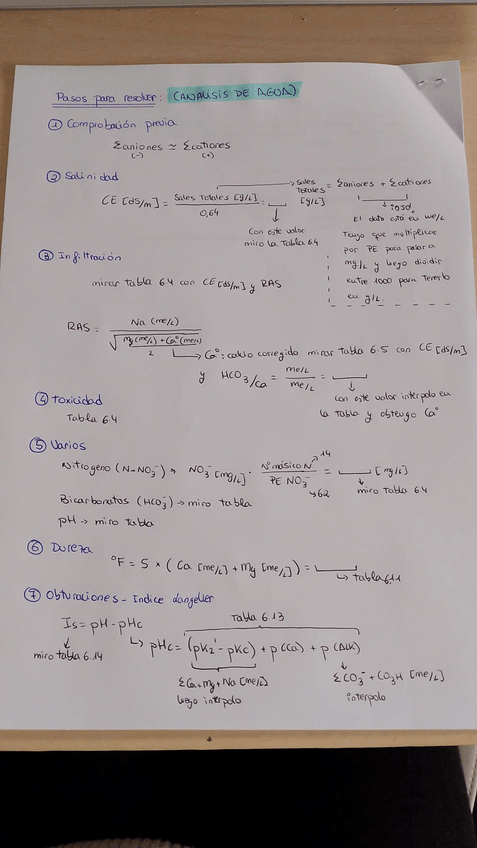 Pasos para resolver: (ANALISIS DE AGUA)
① Comprobación previa
Σaniones ≃ Σcationes
(-) (+)
② Salinidad
CE [dS/m] = Sales Totales [g/L] / 0,64 =
→ Sales Totales [g/L] = Σaniones + Σcationes
Con este valor
miro la Tabla 6.4
El dato está en me/L
Tengo que multiplicar
por PE para pasar a
mg/L y luego dividir
entre 1000 para tenerlo
en g/L.
③ Infiltración
mirar tabla 6.4 con CE [dS/m] y RAS
RAS = Na (me/L) / √(Mg (me/L) + Ca° (me/L) / 2)
→ Ca°: calcio corregido mirar tabla 6.5 con CE [dS/m]
y HCO3/Ca = me/L / me/L =
con este valor interpolo en
la tabla y obtengo Ca°
④ Toxicidad
Tabla 6.4
⑤ Varios
Nitrógeno (N-NO3⁻) → NO3⁻ [mg/L] · Nº másico N → 14 / PE NO3⁻ → 62 = [mg/L]
miro Tabla 6.4
Bicarbonatos (HCO3⁻) → miro tabla
pH → miro tabla
⑥ Dureza
°F = 5 × (Ca [me/L] + Mg [me/L]) =
→ tabla 6.11
⑦ Obturaciones - Indice Langelier
Is = pH - pHc
miro tabla 6.14
Tabla 6.13
→ pHc = (pK2' - pKc) + p(Ca) + p(Alk)
ΣCa+Mg+Na [me/L]
luego interpolo
ΣCO3⁻ + CO3H [me/L]
interpolo